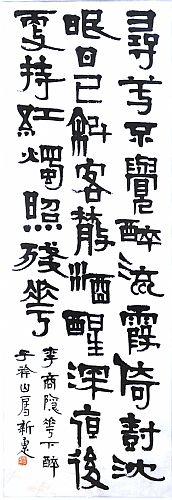 尋芳不覺醉流霞倚樹沈
眠日已斜客散酒醒深宿後
更持紅燭照殘花
李商隱花下醉
于山房新惠